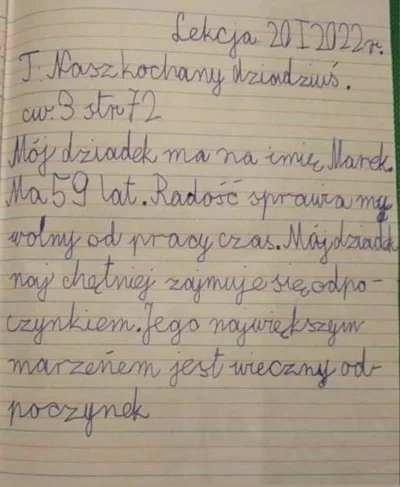 Lekcja 20 I 2022r.
T. Nasz kochany dziadziuś.
ćw. 3 str 72
Mój dziadek ma na imię Marek.
Ma 59 lat. Radość sprawia my
wolny od pracy czas. Mój dziadek
naj chętniej zajmuje się odpo-
czynkiem. Jego największym
marzeńem jest wieczny od-
poczynek